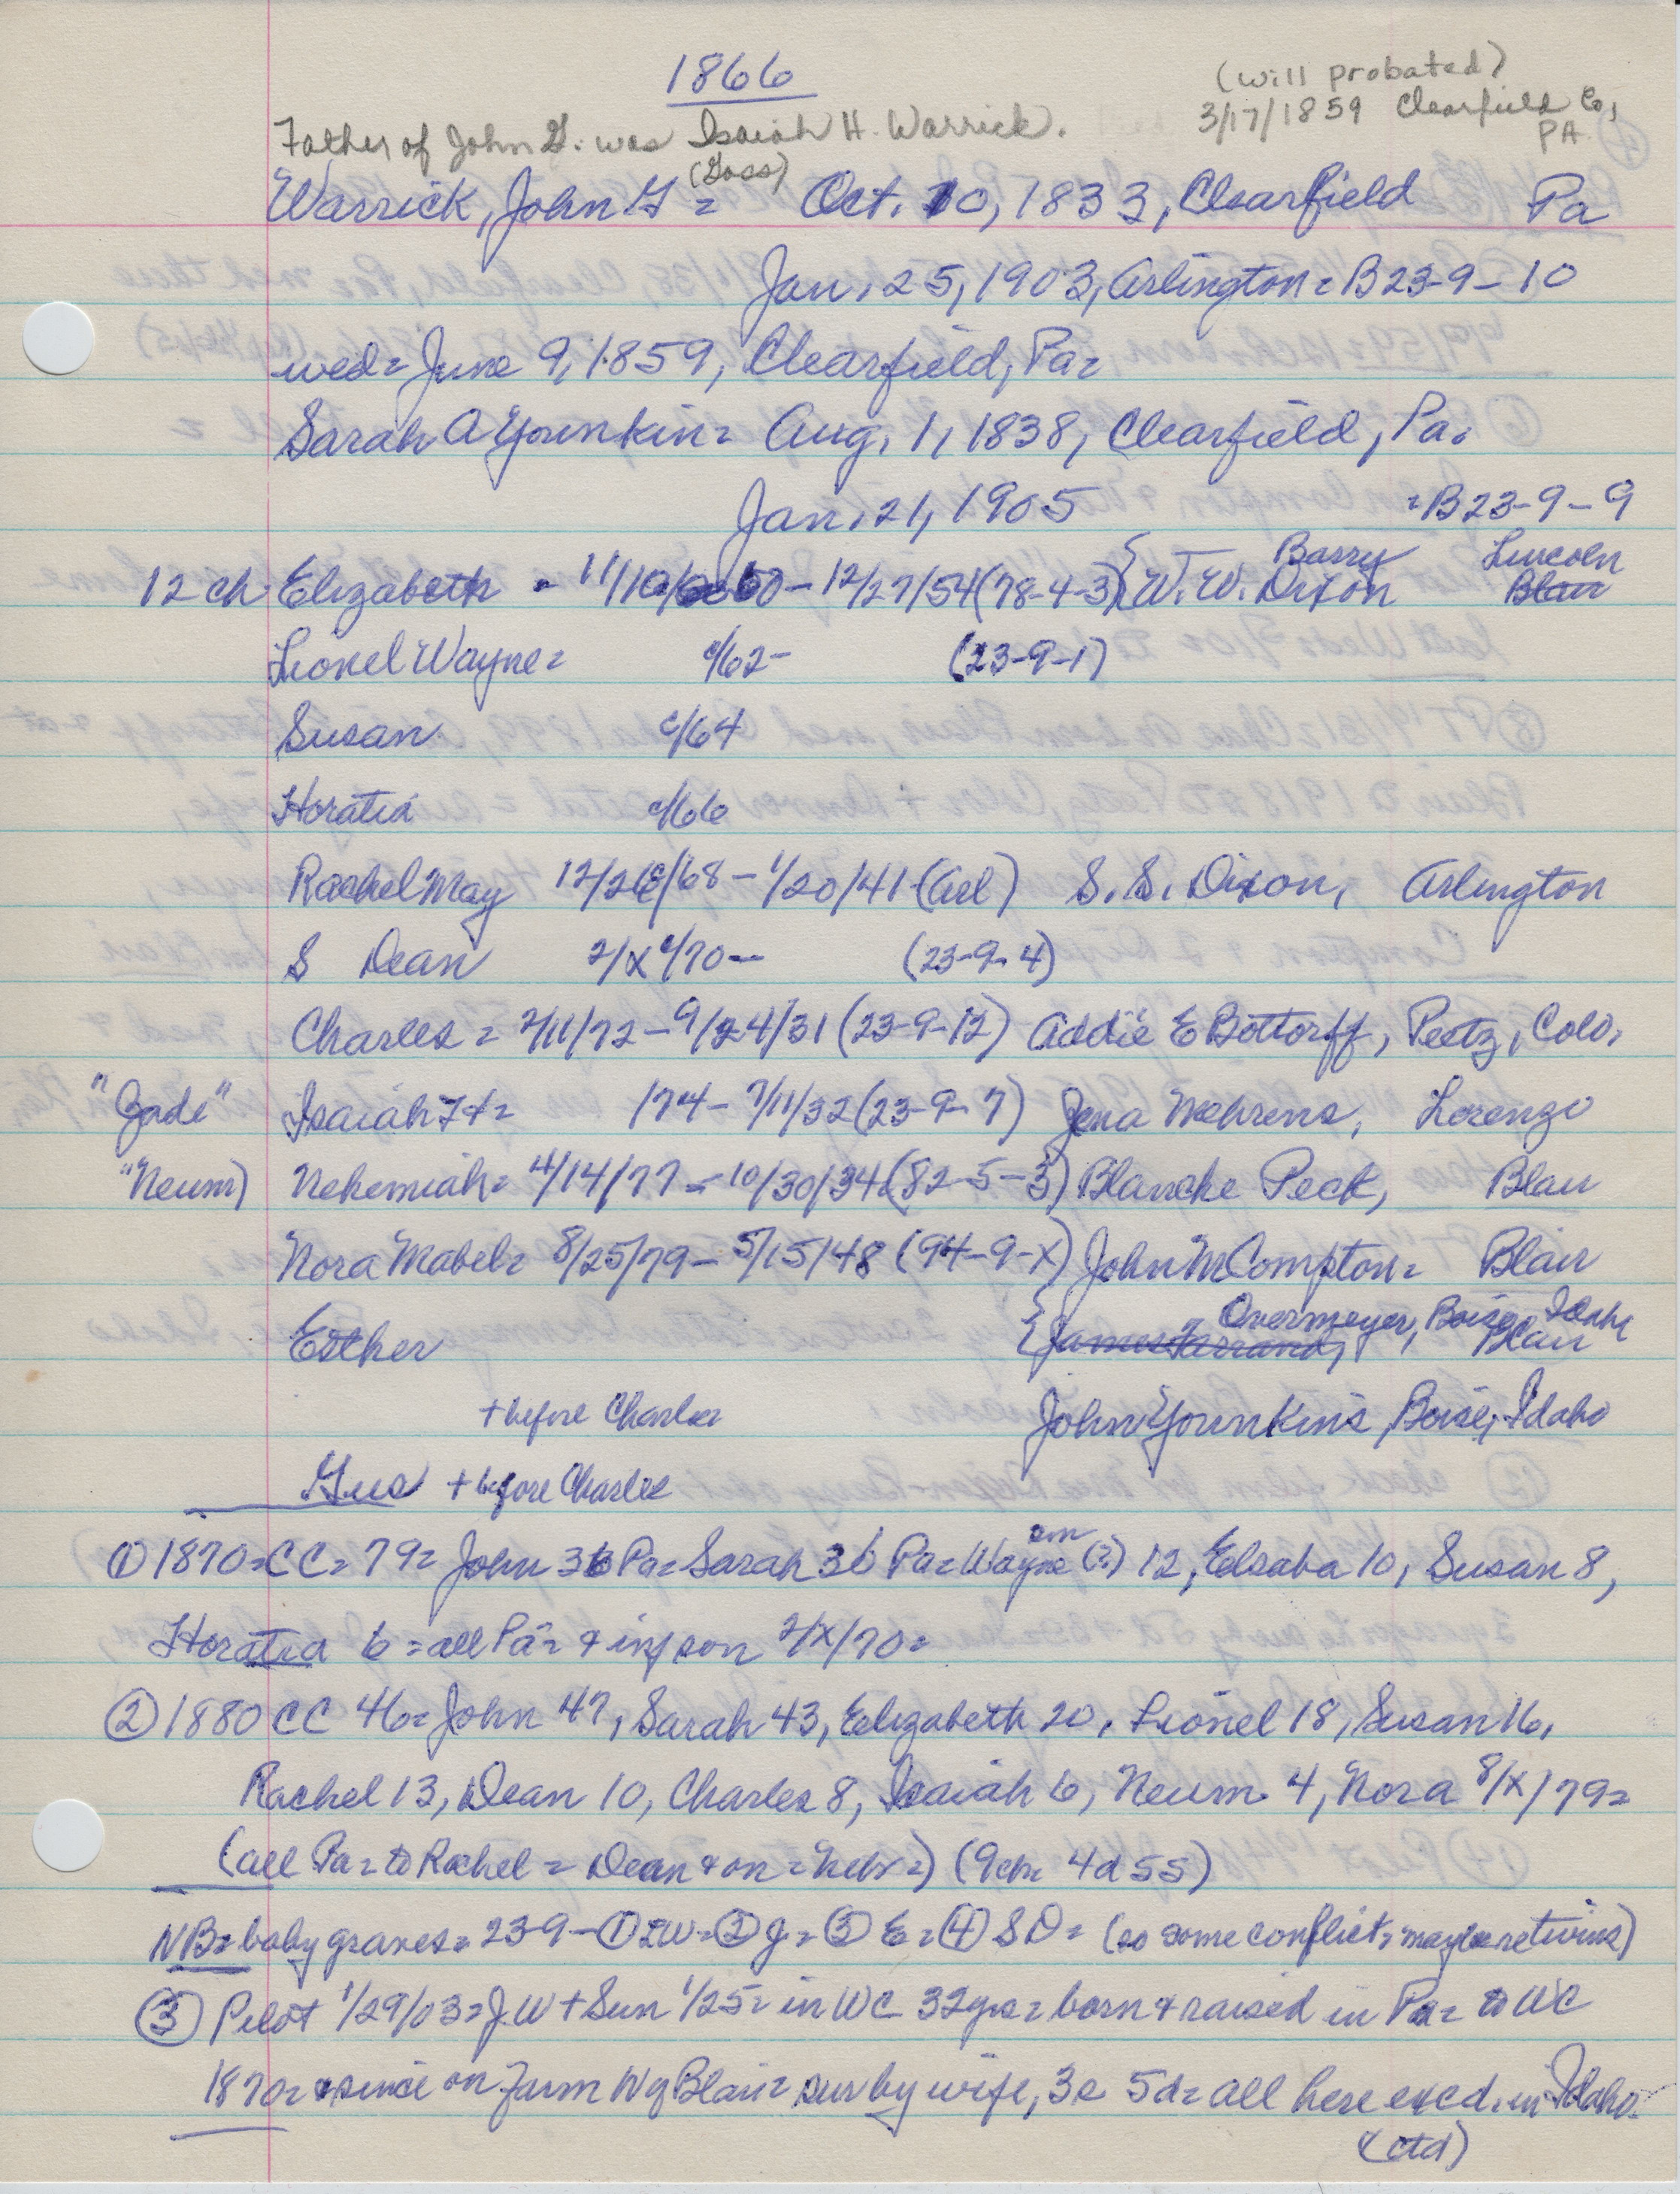 1866
(will probated)
3/17/1859 Clearfield Co,
PA
Father of John G. was Isaiah H. Warrick.
(Goss)
Warrick, John G = Oct. 10, 1833, Clearfield Pa
Jan. 25, 1903, Arlington = B23-9-10
wed = June 9, 1859, Clearfield, Pa =
Sarah A Younkin = Aug. 1, 1838, Clearfield, Pa.
Jan. 21, 1905 = B23-9-9
Barry Lincoln
12 ch Elizabeth = 11/10/60 - 12/27/54 (78-4-3) { W. W. Dixon Blair
Lionel Wayne = c/62 - (23-9-1)
Susan c/64
Horatia c/66
Rachel May 12/26/68 - 1/20/41 (Arl) S. S. Dixon, Arlington
S Dean 2/x c/70 - (23-9-4)
Charles = 2/11/72 - 9/24/31 (23-9-12) Addie E Bottorff, Peetz, Colo.
"Zade" Isaiah H = 174 - 7/11/32 (23-9-7) Jena Mehrens, Lorenzo
"Neum) Nehemiah = 4/14/77 - 10/30/34 (82-5-3) Blanche Peck, Blair
Nora Mabel = 8/25/79 - 5/15/48 (94-9-x) John M Compton = Blair
Overmeyer, Boise, Idaho
Esther { James Farrand, Blair
+ before Charles John Younkins, Boise, Idaho
Gus + before Charles
① 1870 = CC = 79 = John 36 Pa = Sarah 36 Pa = Wayne (?) 12, Elsaba 10, Susan 8,
Horatia 6 = all Pa = & inf son 2/x/70 =
② 1880 CC 46 = John 47, Sarah 43, Elizabeth 20, Lionel 18, Susan 16,
Rachel 13, Dean 10, Charles 8, Isaiah 6, Neum 4, Nora 8/x/79 =
(all Pa = to Rachel = Dean & on = Nebr =) (9ch = 4d 5s)
NB = baby graves = 23-9 - ① LW = ② J = ③ E = ④ SD = (so some conflict, maybe re twins)
③ Pilot 1/29/03 = J.W + Sun 1/25 = in WC 32yrs = born & raised in Pa = to WC
1870 = & since on farm W of Blair = sur by wife, 3s 5d = all here exc d. in Idaho.
(ctd)